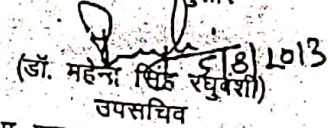 6/8/2013
(डॉ. महेन्द्र सिंह रघुवंशी)
उपसचिव